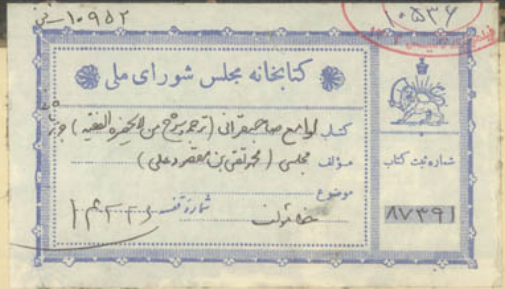 ۱۰۹۵۲
۱۰۵۳۶
کتابخانه مجلس شورای ملی
کتاب لوامع صاحبقرانی (ترجمه شرح من لایحضره الفقیه)
مؤلف مجلسی (محمدتقی بن مقصود علی)
موضوع
شماره قفسه
شماره ثبت کتاب
۸۷۳۹۱